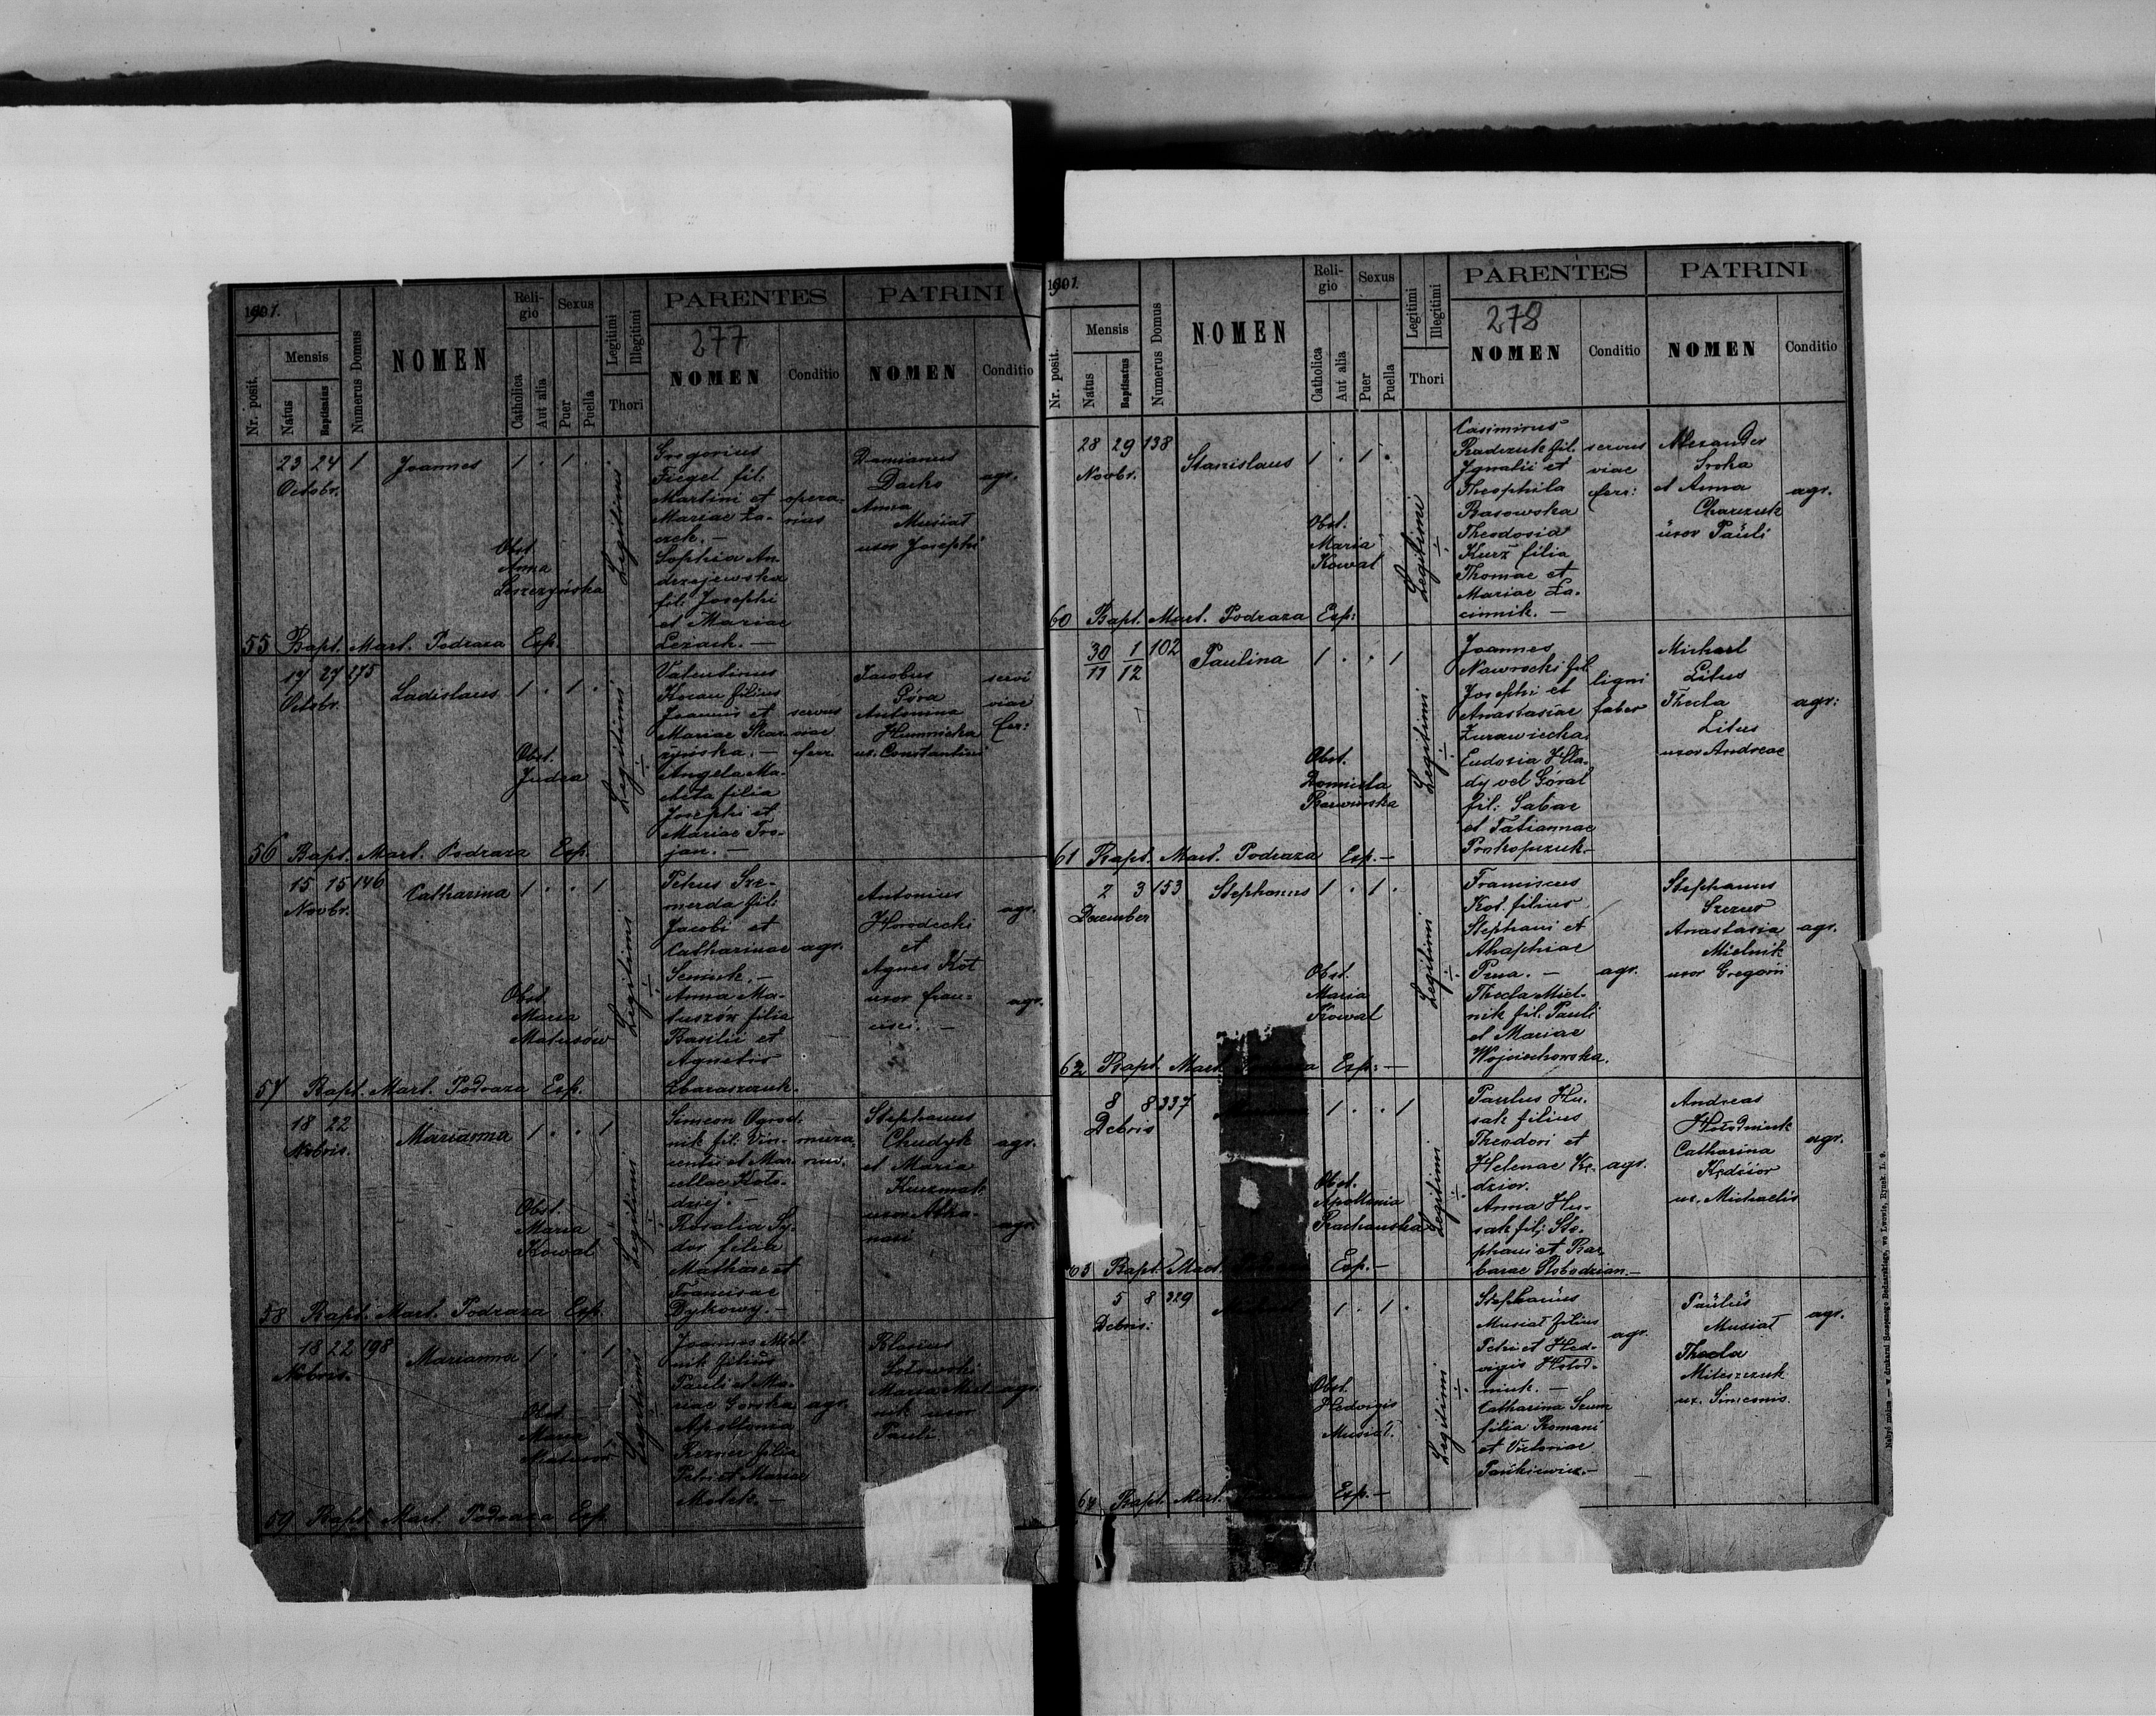 1901.
Nr. posit.
Mensis
Natus
Baptisatus
Numerus Domus
NOMEN
Religio
Catholica
Aut alia
Sexus
Puer
Puella
Legitimi
Illegitimi
Thori
PARENTES
277
NOMEN
Conditio
PATRINI
NOMEN
Conditio
23 24 1 Joannes 1 . 1 .
Octobr.
Obst.
Anna
Leszczyńska
Legitimi
Gregorius
Fiegel fil.
Martini et
Mariae Ża-
czek. —
Sophia An-
drzejewska
fil. Josephi
et Mariae
Leżach. —
opera-
rius
Damianus
Dacko
Anna
Musiał
uxor Josephi
agr.
55 Bapt. Mart. Podraza Exp.
17 27 175 Ladislaus 1 . 1 .
Octobr.
Obst.
Judza
Legitimi
Valentinus
Kocan filius
Joannis et
Mariae Skar-
żyńska. —
Angela Ma-
chita filia
Josephi et
Mariae Tro-
jan. —
servus
viae
ferr.
Jacobus
Góra
Antonina
Humnicka
ux. Constantini
servi
viae
fer:
56 Bapt. Mart. Podraza Exp.
15 15 146 Catharina 1 . . 1
Novbr.
Obst.
Maria
Matusów
Legitimi
Petrus Sze-
merda fil.
Jacobi et
Catharinae
Semuk. —
Anna Ma-
tuszów filia
Basilii et
Agnetis
Zbaraszczuk.
agr.
Antonius
Horodecki
et
Agnes Kot
uxor Fran-
cisci. —
agr.
agr.
57 Bapt. Mart. Podraza Exp.
18 22 Marianna 1 . . 1
Nobris.
Obst.
Maria
Kowal
Legitimi
Simeon Ogrod-
nik fil. Vin-
centii et Mar-
cellae Koło-
dziej. —
Rosalia Sy-
dor filia
Mathiae et
Franciscae
Dykowy. —
mura-
rius.
Stephanus
Chudyk
et Maria
Kuzmak
uxor Atha-
nasi
agr.
agr.
58 Bapt. Mart. Podraza Exp.
18 22 198 Marianna 1 . . 1
Nobris.
Obst.
Maria
Matusów
Legitimi
Joannes Miel-
nik filius
Pauli et Ma-
riae Gorska
Apollonia
Berner filia
Petri et Mariae
Melek. —
agr.
Blasius
Sołowski
Maria Miel-
nik uxor
Pauli
agr.
59 Bapt. Mart. Podraza Exp.
1901.
Nr. posit.
Mensis
Natus
Baptisatus
Numerus Domus
NOMEN
Religio
Catholica
Aut alia
Sexus
Puer
Puella
Legitimi
Illegitimi
Thori
PARENTES
278
NOMEN
Conditio
PATRINI
NOMEN
Conditio
28 29 138 Stanislaus 1 . 1 .
Novbr.
Obst.
Maria
Kowal
Legitimi
Casimirus
Radczuk fil.
Ignatii et
Theophila
Basowska
Theodosia
Kurz filia
Thomae et
Mariae Ła-
cinnik. —
servus
viae
ferr:
Alexander
Sroka
et Anna
Charczuk
uxor Pauli
agr.
60 Bapt. Mart. Podraza Exp:
30/11 1/12 102 Paulina 1 . . 1
Obst.
Domicela
Barwińska
Legitimi
Joannes
Nawrocki fil.
Josephi et
Anastasiae
Żurawiecka
Eudosia Hła-
dy vel Góral
fil: Sabae
et Tatiannae
Prokopczuk. —
ligni
faber
Michael
Litus
Thecla
Litus
uxor Andreae
agr:
61 Bapt. Mart. Podraza Exp. —
2 3 153 Stephanus 1 . 1 .
December
Obst.
Maria
Kowal
Legitimi
Franciscus
Kot filius
Stephani et
Ahaphiae
Prua. —
Thecla Miel-
nik fil. Pauli
et Mariae
Wojciechowska.
agr.
Stephanus
Szezus
Anastasia
Mielnik
uxor Gregorii
agr.
62 Bapt. Mart. Exp: —
8 8 337 1 . . 1
Debris
Obst.
Apollonia
Rachauska
Legitimi
Paulus Hu-
sak filius
Theodori et
Helenae Kę-
dzior.
Anna Hu-
sak fil: Ste-
phani et Bar-
barae Słobodzian. —
agr.
Andreas
Hołodniuk
Catharina
Kędzior
ux. Michaelis
agr.
63 Bapt. Mart. Exp. —
5 8 329 1 . 1 .
Debris.
Obst.
Hedvigis
Musiał.
Legitimi
Stephanus
Musiał filius
Petri et Hed-
vigis Hołod-
niuk. —
Catharina Szum
filia Romani
et Victoriae
Pańkiewicz. —
agr.
Paulus
Musiał
Thecla
Mileszczuk
ux. Simeonis.
agr.
64 Bapt. Mart. Exp. —